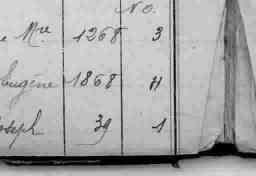 No.
e Mre 1268 3
Eugène 1868 H
Joseph 39 1